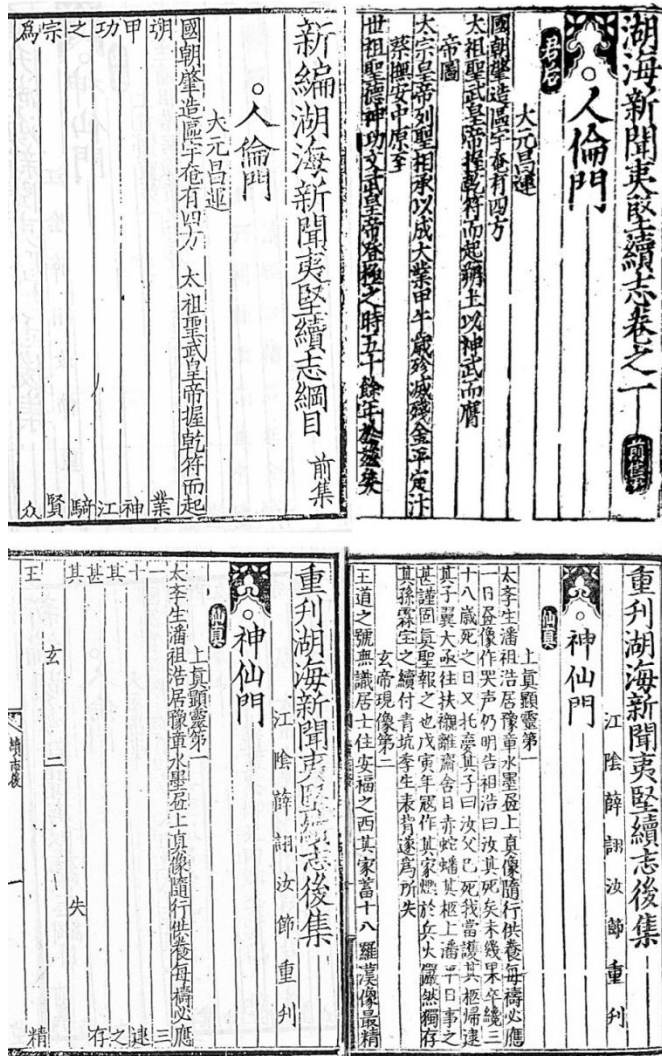 湖海新聞夷堅續志卷之一 前集
。人倫門
君后
大元昌運
國朝肇造區宇奄有四方
太祖聖武皇帝握乾符而起朔土以神武而膺
帝圖
太宗皇帝列聖相承以成大業甲午歲殄滅殘金平定汴
蔡撫安中原至
世祖聖德神功文武皇帝登極之時五十餘年於茲矣
新編湖海新聞夷堅續志綱目 前集
。人倫門
大元昌運
國朝肇造區宇奄有四方 太祖聖武皇帝握乾符而起
朔 業
甲 神
功 江
之 騎
宗 賢
為 众
重刊湖海新聞夷堅續志後集
江陰薛詡汝節重刊
。神仙門
仙真
上真顯靈第一
太李生潘祖浩居豫章水墨昼上真像隨行供養每禱必應
一日昼像作哭声仍明告祖浩曰汝其死矣未幾果卒纔三
十八歲死之日又托夢其子曰汝父已死我當護其柩歸逮
其子翼大亟往扶櫬離齋舍日赤蛇蟠其柩上潘平日事之
甚謹固真聖報之也戊寅年寇作其家燬於兵火儼然獨存
其孫霖宝之續付青坑李生表背遂為所失
玄帝現像第二
王道之號無識居士住安福之西其家蓄十八羅漢像最精
重刊湖海新聞夷堅續志後集
江陰薛詡汝節重刊
。神仙門
仙真
上真顯靈第一
太李生潘祖浩居豫章水墨昼上真像隨行供養每禱必應
一 三
十 逮
其 之
甚 存
其 失
玄 二
王 精
續志後